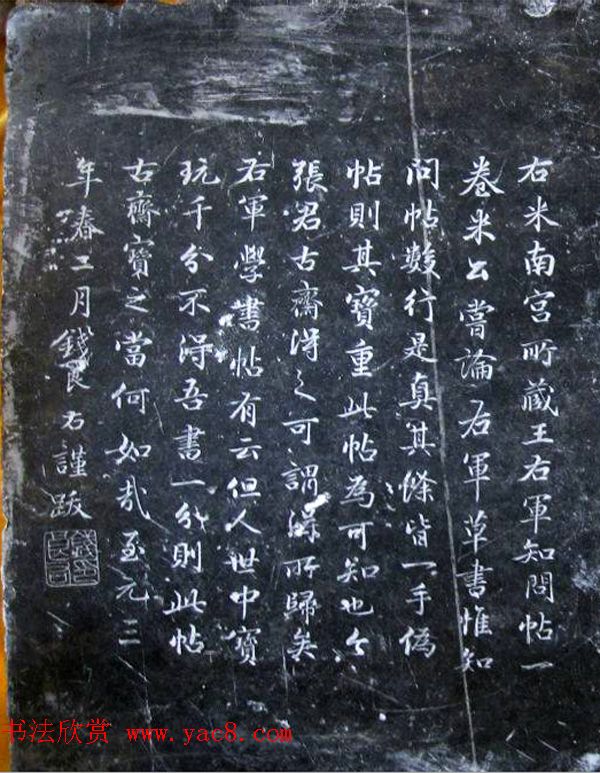 右米南宮所藏王右軍知問帖一
卷米公嘗論右軍草書惟知
問帖數行是真其餘皆一手偽
帖則其寶重此帖為可知也今
張君古齋得之可謂得所歸矣
右軍學書帖有云但人世中寶
玩千分不得吾書一分則此帖
古齋寶之當何如哉至元三
年春二月錢良右謹跋
书法欣赏 www.yac8.com